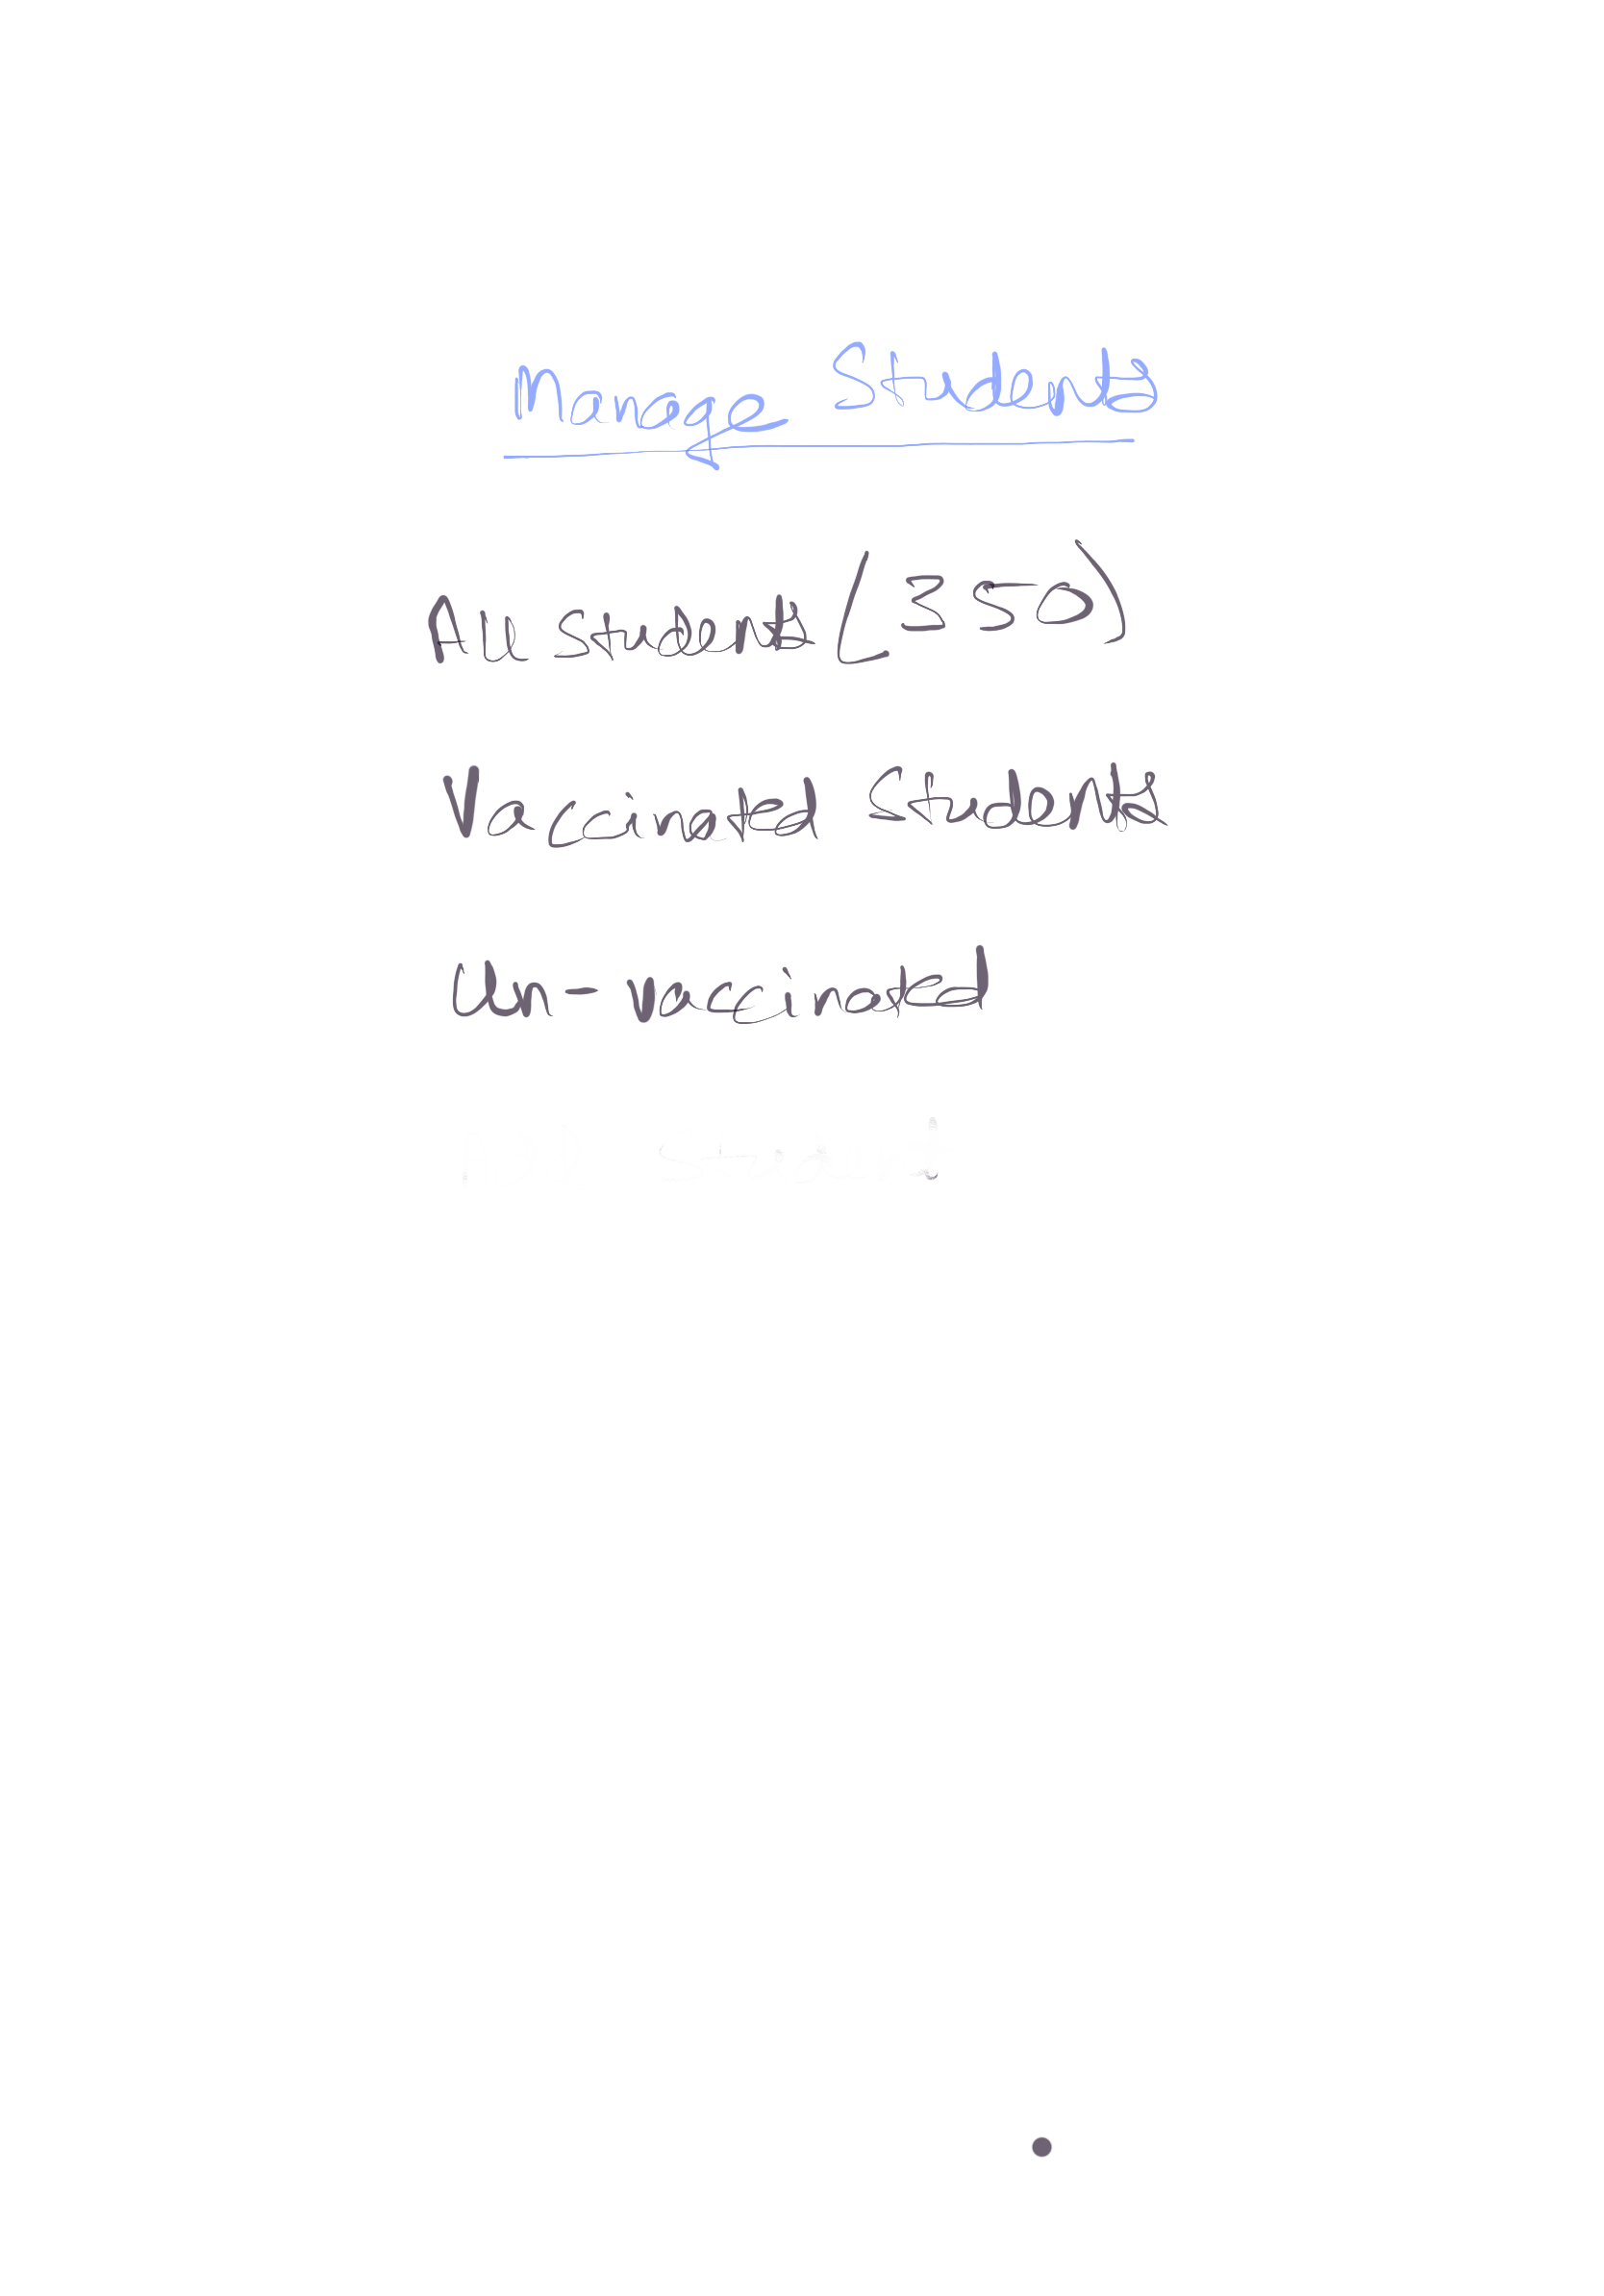 Manage Students
All Students (350)
Vaccinated Students
Un-vaccinated
Student